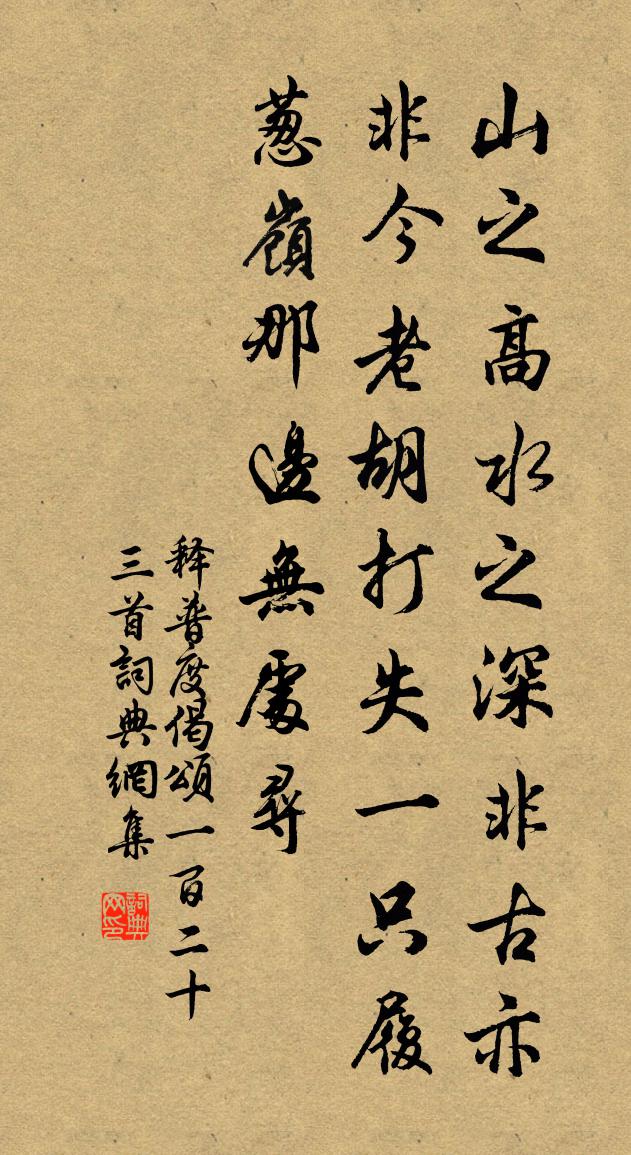 山之高水之深非古亦
非今老胡打失一只履
葱嶺那邊無處尋
释普度偈頌一百二十
三首詞典網集
詞典网印